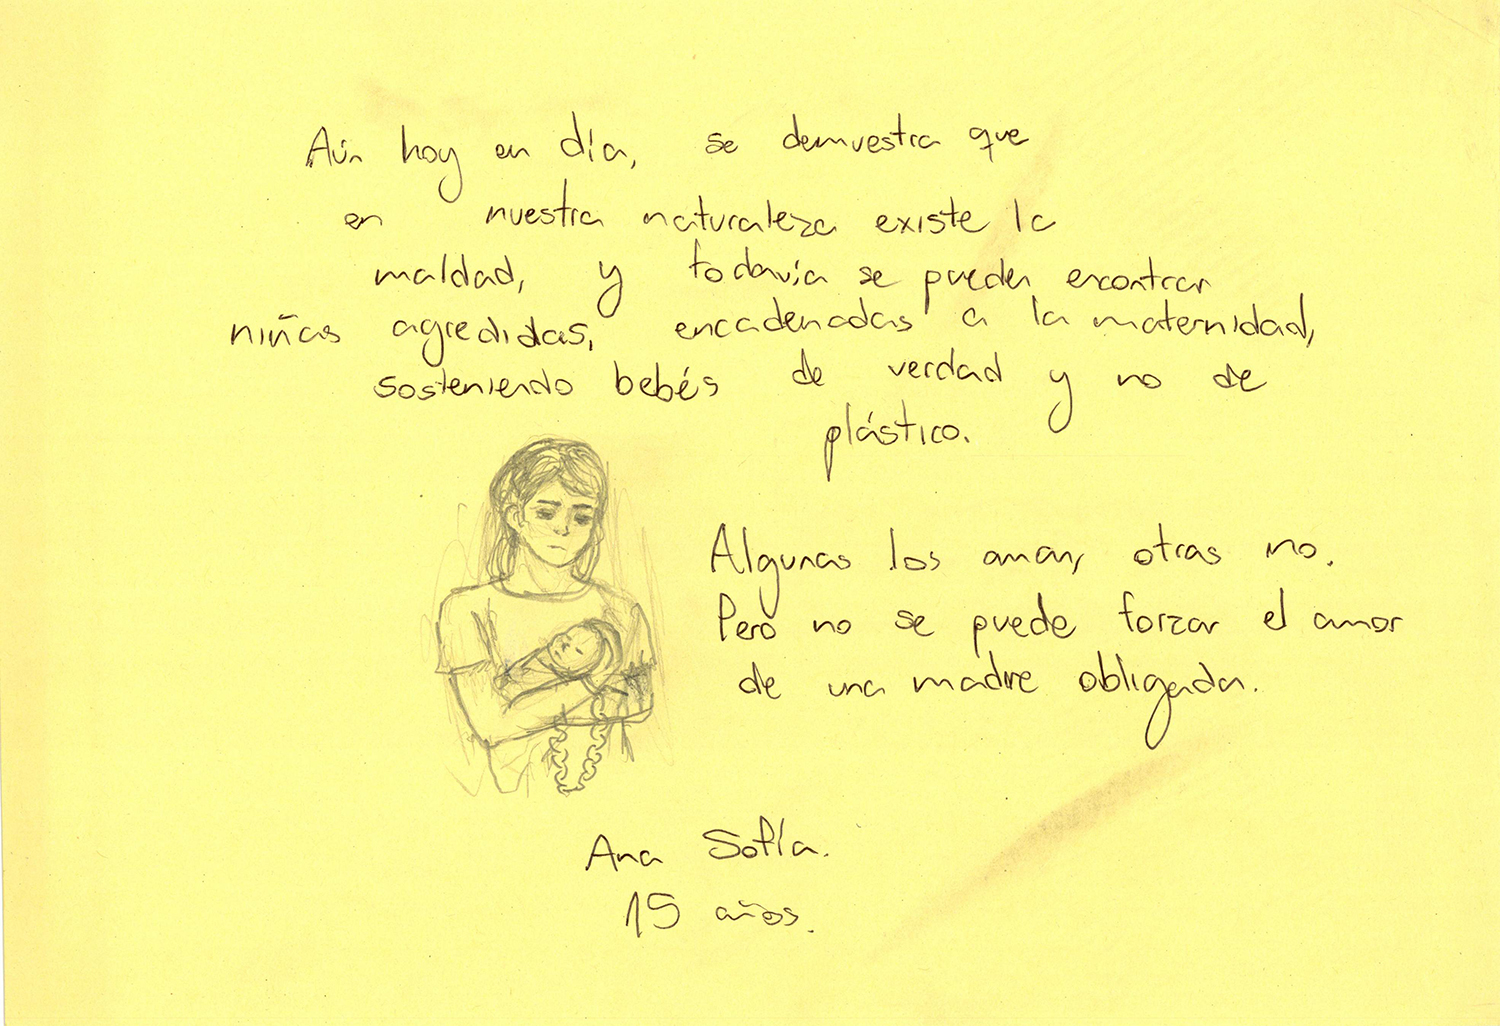 Aún hoy en día, se demuestra que
en nuestra naturaleza existe la
maldad, y todavía se pueden encontrar
niñas agredidas, encadenadas a la maternidad,
sosteniendo bebés de verdad y no de
plástico.
Algunas los aman, otras no.
Pero no se puede forzar el amor
de una madre obligada.
Ana Sofía.
15 años.